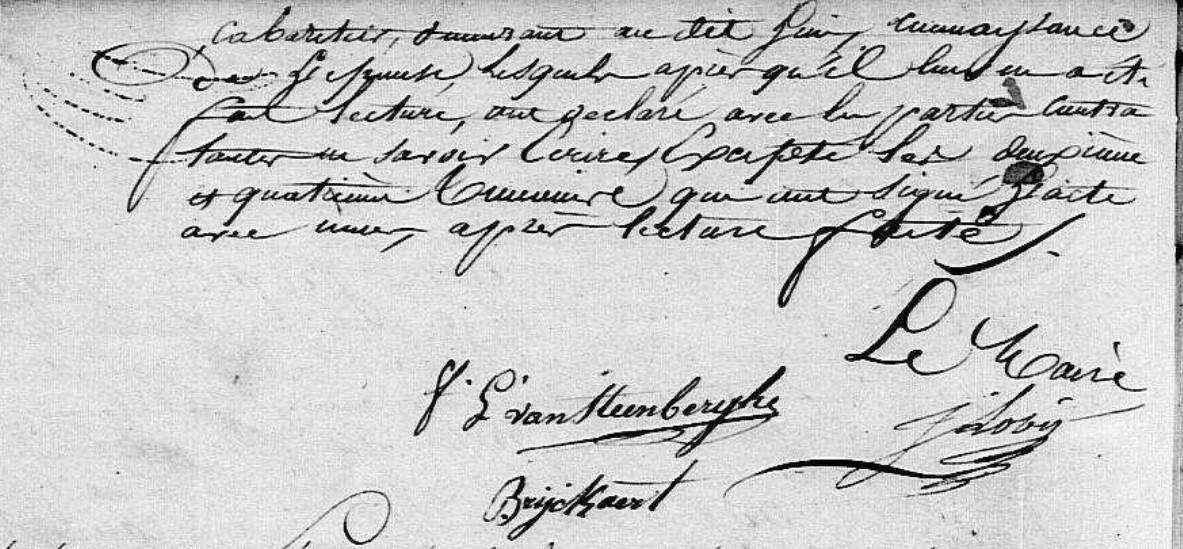 Cabaretier, demeurant au dit Lieu, connaissance
de L'Epouse, lesquels après qu'il leur en a été
fait lecture, ont declaré avec les parties Contra
tantes ne savoir Ecrire, Excepté les deuxième
et quatrième temoins qui ont signé L'acte
avec nous, après lecture faite
Le Maire
van Steenberghe
Bryckaert